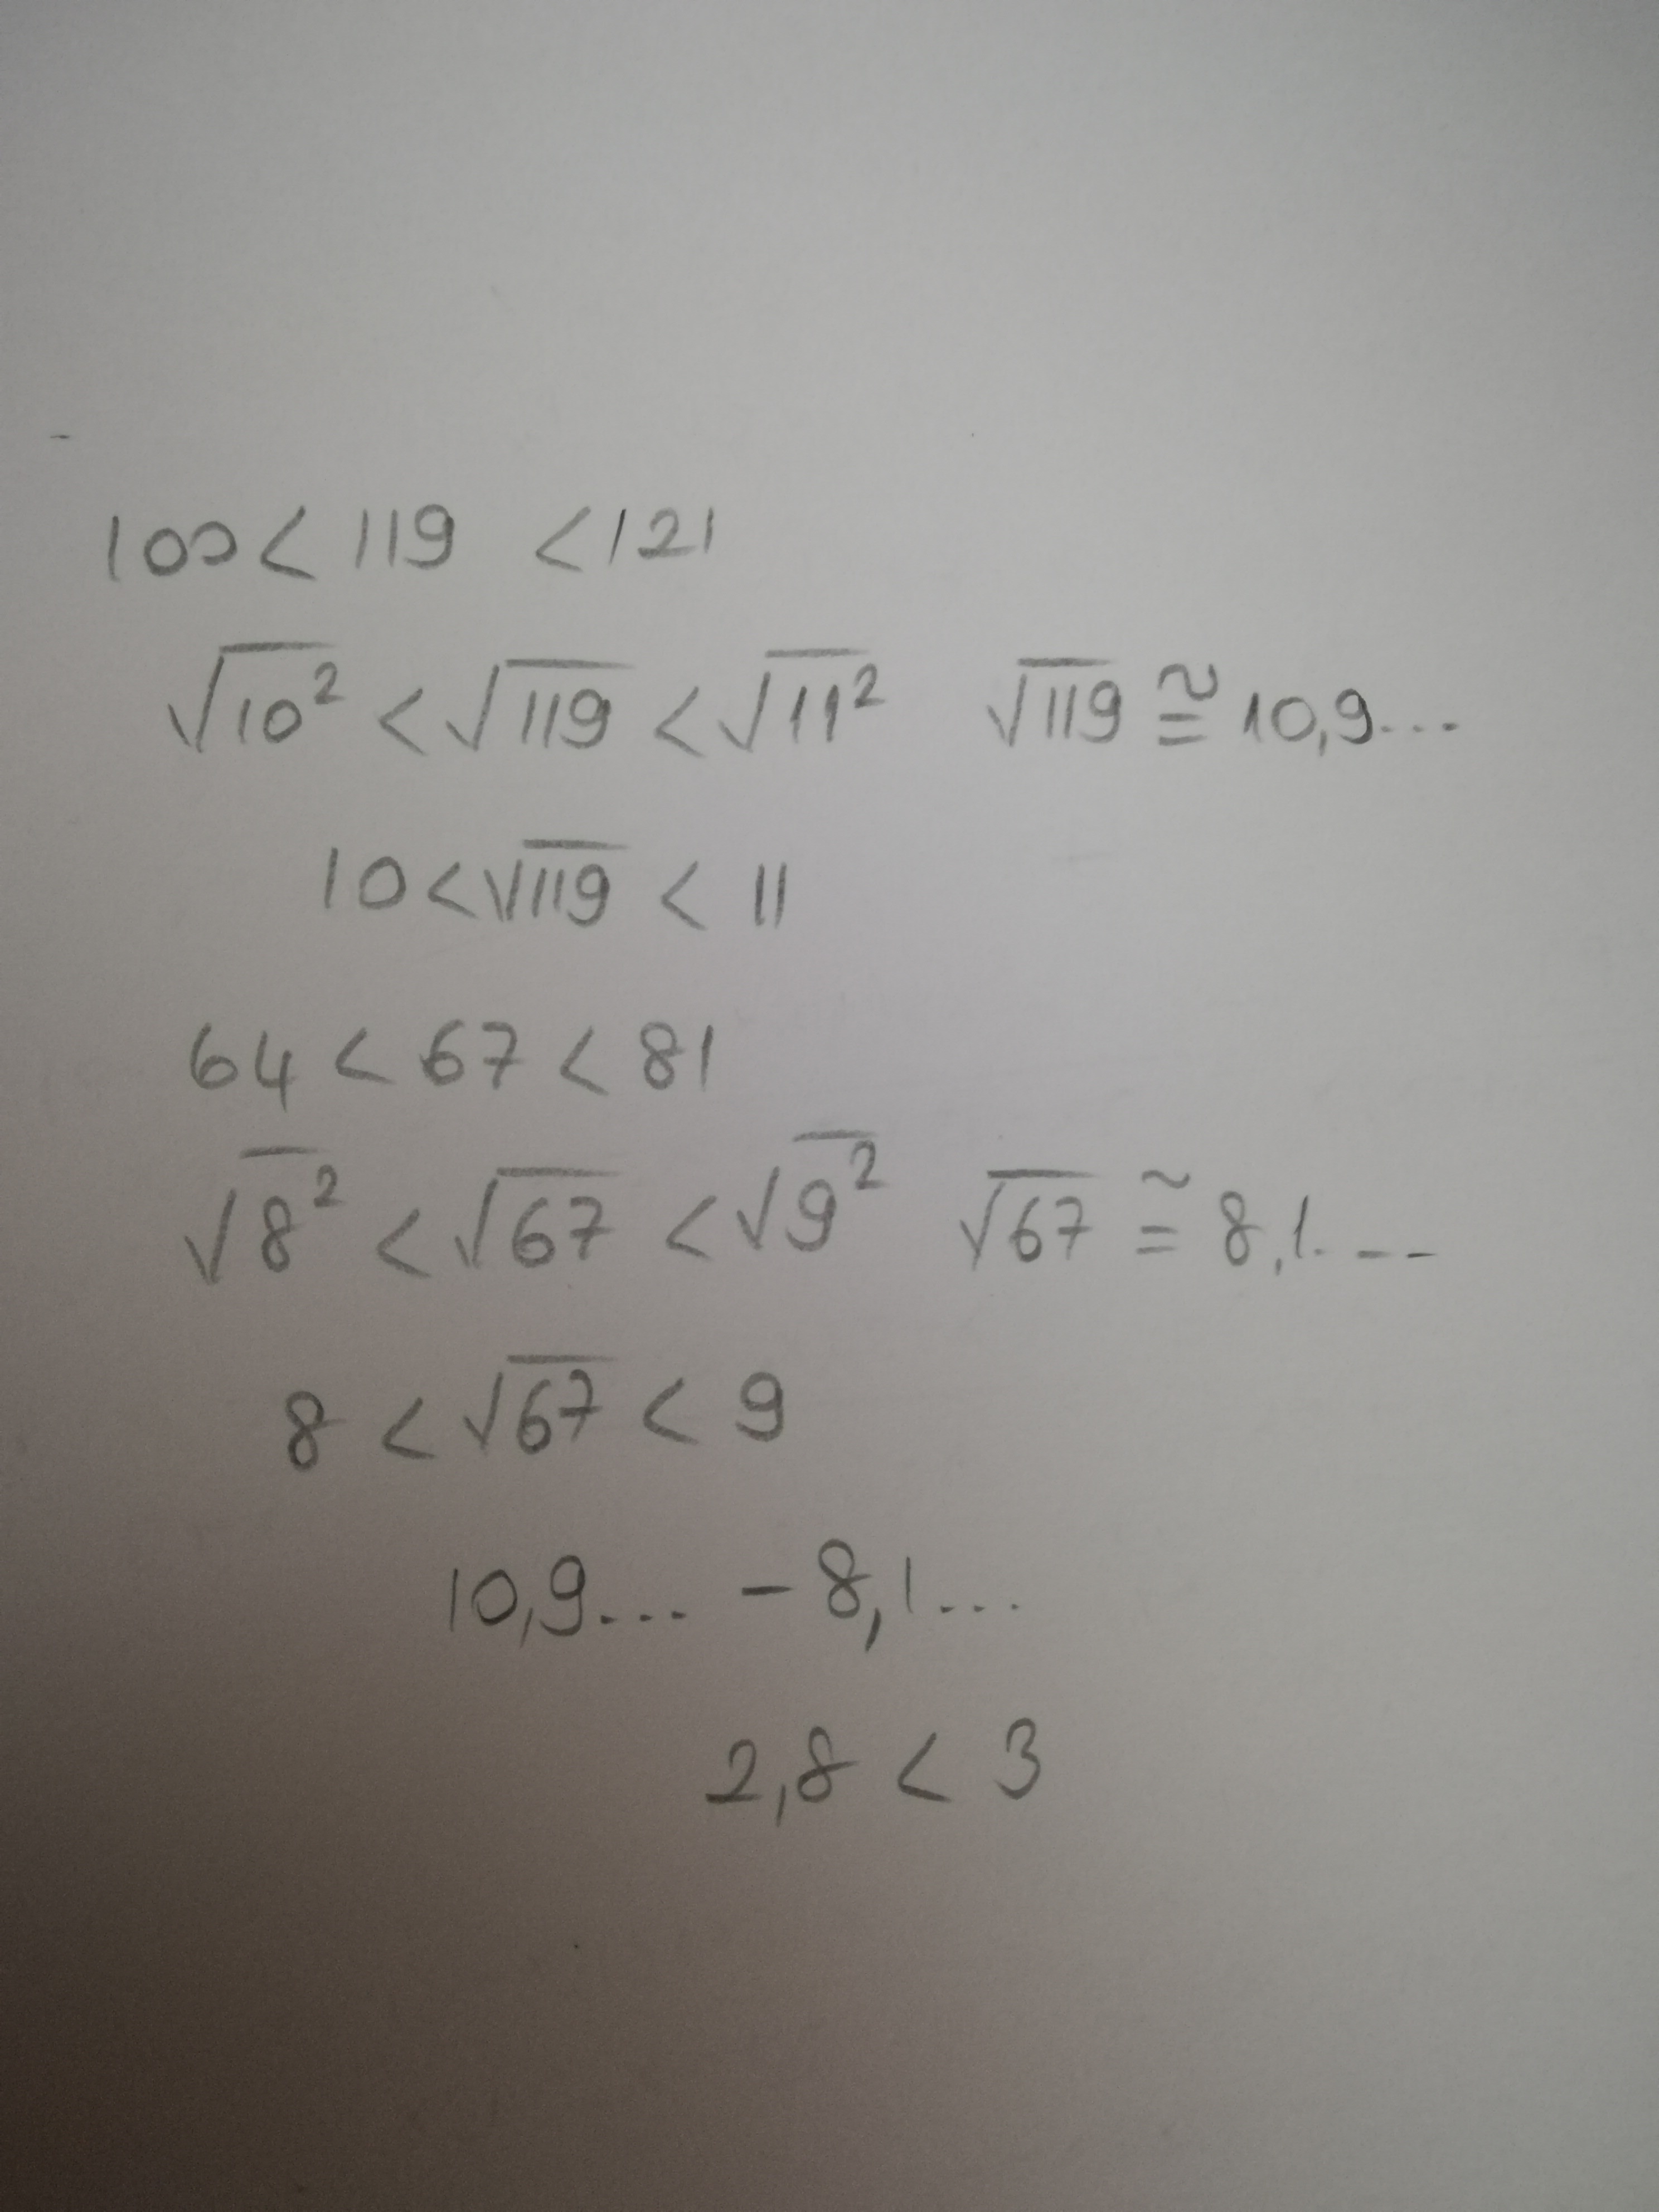 100 < 119 < 121
√10² < √119 < √11² √119 ≅ 10,9...
10 < √119 < 11
64 < 67 < 81
√8² < √67 < √9² √67 ≅ 8,1...
8 < √67 < 9
10,9... - 8,1...
2,8 < 3